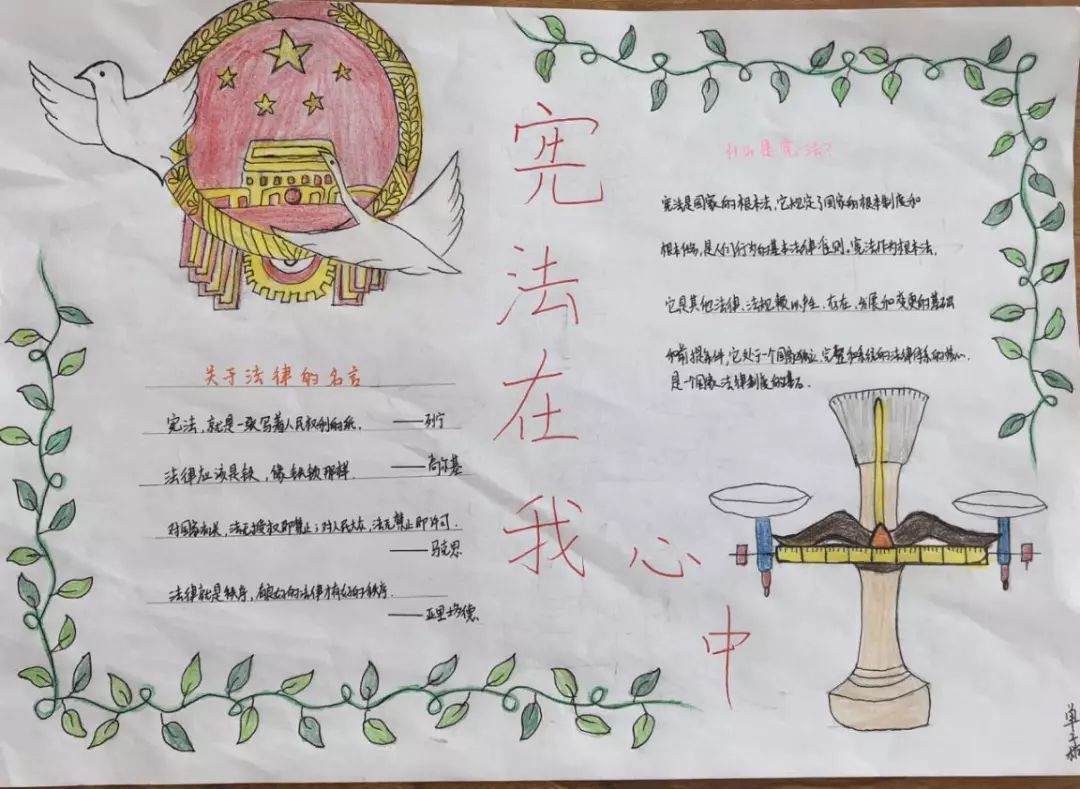 宪法在我心中
关于法律的名言
宪法,就是一张写着人民权利的纸. ——列宁
法律应该是铁,像铁锁那样. ——高尔基
对国家机关,法无授权即禁止;对人民大众,法无禁止即许可.
——马克思
法律就是秩序,好的法律才有好的秩序.
——亚里士多德
什么是宪法?
宪法是国家的根本法,它规定了国家的根本制度和
根本任务,是人们行为的基本法律准则。宪法作为根本法,
它是其他法律、法规赖以产生、存在、发展和变更的基础
和前提条件,它处于一个国家独立、完整和系统的法律体系的核心,
是一个国家法律制度的基石.
单子